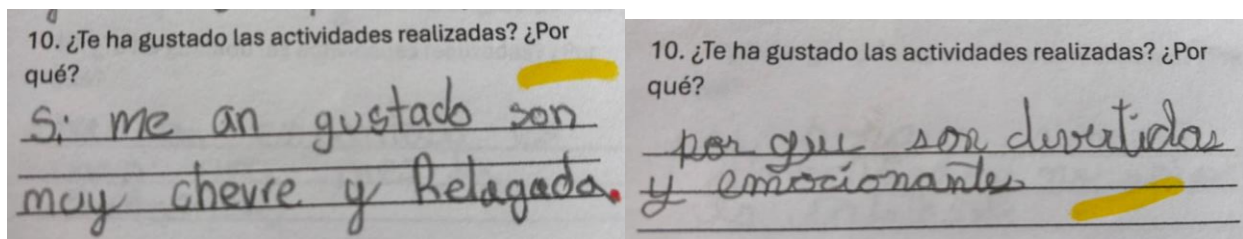 10. ¿Te ha gustado las actividades realizadas? ¿Por
qué?
Si me an gustado son
muy chevre y Relagada.
10. ¿Te ha gustado las actividades realizadas? ¿Por
qué?
por que son divertidas
y emocionantes